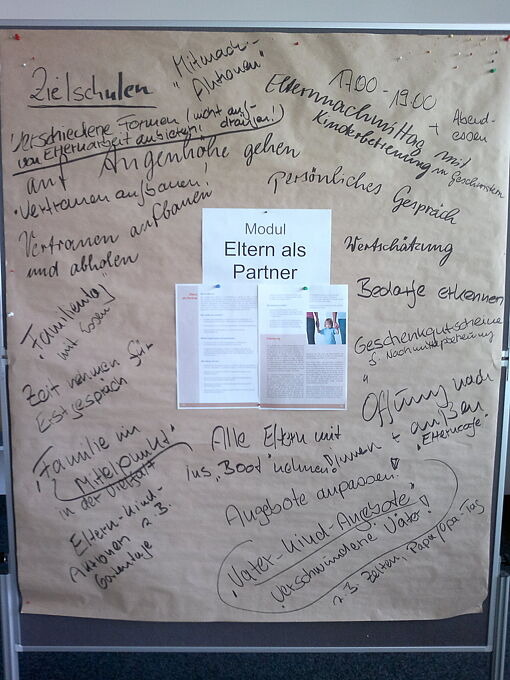 Zielschulen
"Mitmach-
Aktionen"
17.00 - 19.00
Elternnachmittag mit
Kinderbetreuung
+ Abend-
essen
Verschiedene Formen (nicht auf-
von Elternarbeit anbieten!
auf Augenhöhe gehen
• Vertrauen aufbauen!
Vertrauen aufbauen
und abholen
Persönliches Gespräch
Wertschätzung
Bedarfe erkennen
Geschenkgutscheine
f. Nachmittagsbetreuung
Modul
Eltern als
Partner
Zeit nehmen für
Erstgespräch
"Familie im
Mittelpunkt"
in der Vielfalt
Eltern-Kind-
Aktionen z.B.
Öffnung nach
innen + außen
"Elterncafe"
Alle Eltern mit
ins "Boot" nehmen!
Angebote anpassen!
"Vater-Kind-Angebote"
Verschwundene Väter!
z.B. Zelten, Papa/Opa-Tag